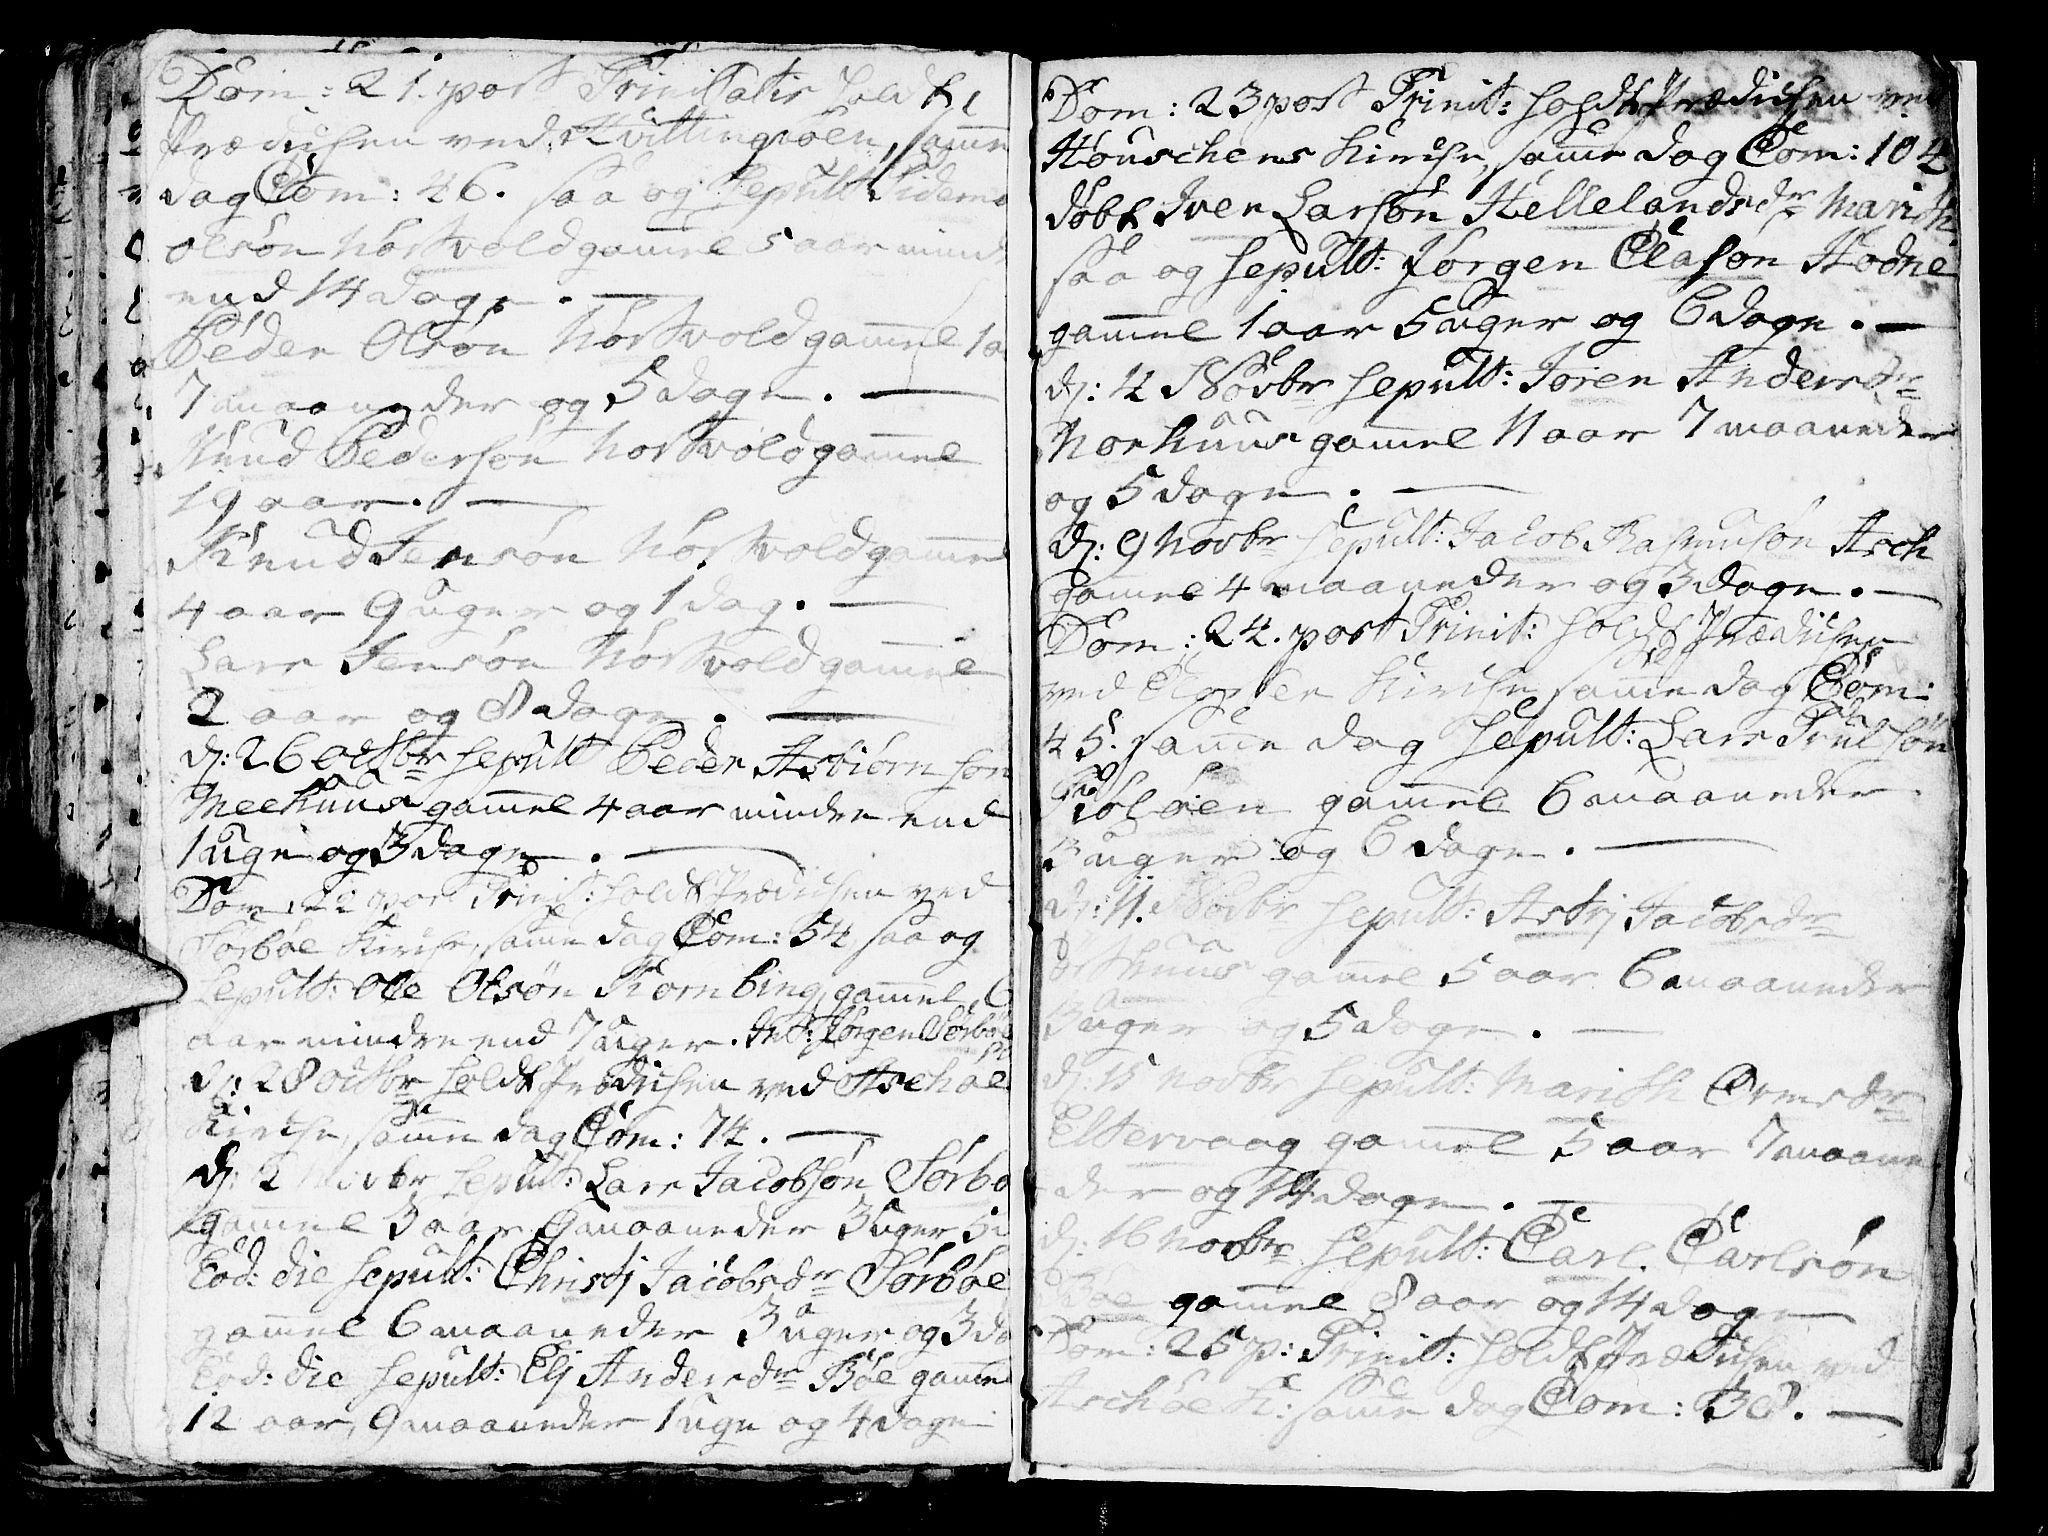 Dom: 21. post Trinitatis holdt
Prædichen ved Hvittingsöen, samme
dag Com: 46. saa og Sepult:
olsön Nortvold gamel 5 aar mindr
end 14 dage. —
Peder Olsön Nortvold gamel 1 a
7 maaneder og 5 dage. —
Knud Pedersön Nortvold gamel
19 aar. —
Knud Jensön Nortvold gamel
4 aar 9 uger og 1 dag. —
Lars Jensön Nortvold gamel
2 aar og 8 dage. —
d: 26 octbr sepult Peder Asbiörnsön
Meehuus gamel 4 aar minder end
1 uge og 3 dage. —
Dom: 22 post Trinit: holdt Prædichen ved
Sörböe Kirche, same dag Com: 54 saa og
Sepult: Ole Olsön gamel 6
aar mindre end 7 uger. Jörgen Sörböe
d: 28 octbr holdt Prædichen ved Aschöe
Kirche, same dag Com: 74. —
d: 2 Novbr sepult: Lars Jacobsön Sörbö
gamel 3 aar 9 maaneder 3 uger 5 d
Eod: die sepult: Christj Jacobsdr Sörböe
gamel 6 maaneder 3 uger og 3 da
Eod: die sepult: Elj Andersdr Böe gamel
12 aar, 9 maaneder 1 uge og 4 dage
Dom: 23 post Trinit: holdt Prædichen ved
Houschens Kirche, same dag Com: 104
döbt Iver Larsön Hellelands dr Marith
saa og sepult: Jörgen Olasön Hodne
gamel 1 aar 5 uger og 6 dage. —
d: 4 Novbr sepult: Joren Andersdr
Norhuus gamel 11 aar 7 maaneder
og 5 dage. —
d: 9 Novbr sepult: Jacob Rasmusön Asch
gamel 4 maaneder og 3 dage. —
Dom: 24. post Trinit: holdt Prædichen
ved Kirche same dag Com:
45. same dag sepult: Lars Truelsön
gamel 6 maaneder
3 uger og 6 dage. —
d: 11. Novbr sepult: Astrj Jacobsdr
gamel 5 aar 6 maaneder
3 uger og 5 dage. —
d: 15 Novbr sepult: Marith Ormsdr
Eltervaag gamel 5 aar 7 maane
der og 14 dage. —
d: 16 Novbr sepult: Carl Carlsön
Böe gamel 8 aar og 14 dage
Dom: 25 p: Trinit: holdt Prædichen ved
Aschöe K: same dag Com: 38. —